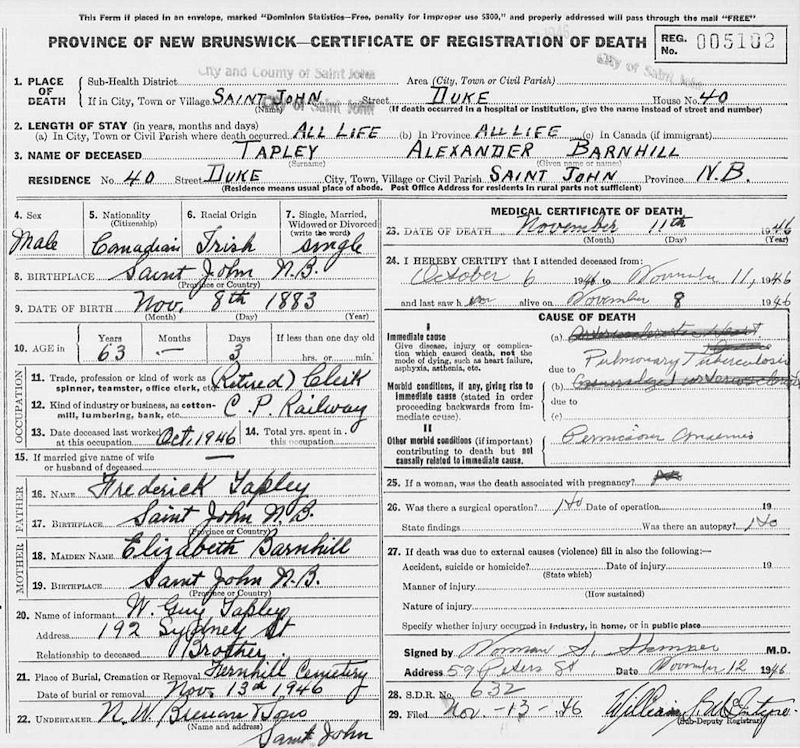 This Form if placed in an envelope, marked "Dominion Statistics—Free, penalty for improper use $300," and properly addressed will pass through the mail "FREE"
PROVINCE OF NEW BRUNSWICK—CERTIFICATE OF REGISTRATION OF DEATH
REG. No. 005102
City and County of Saint John
City of Saint John
1. PLACE OF DEATH
Sub-Health District Area (City, Town or Civil Parish)
If in City, Town or Village SAINT JOHN Street DUKE House No. 40
City of Saint John
(Name) (If death occurred in a hospital or institution, give the name instead of street and number)
2. LENGTH OF STAY (in years, months and days)
(a) In City, Town or Civil Parish where death occurred ALL LIFE (b) In Province ALL LIFE (c) In Canada (if immigrant)
3. NAME OF DECEASED TAPLEY ALEXANDER BARNHILL
(Surname) (Given name or name)
RESIDENCE No. 40 Street DUKE City, Town, Village or Civil Parish SAINT JOHN Province N.B.
(Residence means usual place of abode. Post Office Address for residents in rural parts not sufficient)
4. Sex Male
5. Nationality (Citizenship) Canadian
6. Racial Origin Irish
7. Single, Married, Widowed or Divorced (write the word) single
8. BIRTHPLACE Saint John N.B.
(Province or Country)
9. DATE OF BIRTH Nov. 8th 1883
(Month) (Day) (Year)
10. AGE in Years 63 Months — Days 3 If less than one day old hrs. or min.
OCCUPATION
11. Trade, profession or kind of work as spinner, teamster, office clerk, etc. (Retired) Clerk
12. Kind of industry or business, as cotton-mill, lumbering, bank, etc. C. P. Railway
13. Date deceased last worked at this occupation Oct. 1946
14. Total yrs. spent in this occupation
15. If married give name of wife or husband of deceased —
FATHER
16. NAME Frederick Tapley
17. BIRTHPLACE Saint John N.B.
(Province or Country)
MOTHER
18. MAIDEN NAME Elizabeth Barnhill
19. BIRTHPLACE Saint John N.B.
(Province or Country)
20. Name of informant W. Guy Tapley
Address 192 Sydney St
Relationship to deceased Brother
21. Place of Burial, Cremation or Removal Fernhill Cemetery
Date of burial or removal Nov. 13th 1946
22. UNDERTAKER N. W. Brenan & Sons
(Name and address)
Saint John
MEDICAL CERTIFICATE OF DEATH
23. DATE OF DEATH November 11th 1946
(Month) (Day) (Year)
24. I HEREBY CERTIFY that I attended deceased from:
October 6 1946 to November 11, 1946
and last saw him alive on November 8 1946
CAUSE OF DEATH
I
Immediate cause
Give disease, injury or complication which caused death, not the mode of dying, such as heart failure, asphyxia, asthenia, etc.
(a)
Pulmonary Tuberculosis
due to
Morbid conditions, if any, giving rise to immediate cause (stated in order proceeding backwards from immediate cause).
(b) Generalized arteriosclerosis
due to
(c)
II
Other morbid conditions (if important) contributing to death but not causally related to immediate cause.
Pernicious anaemia
25. If a woman, was the death associated with pregnancy?
26. Was there a surgical operation? No Date of operation 19
State findings Was there an autopsy? No
27. If death was due to external causes (violence) fill in also the following:—
Accident, suicide or homicide? Date of injury 19
(State which)
Manner of injury
(How sustained)
Nature of injury
Specify whether injury occurred in industry, in home, or in public place
Signed by Norman S. M.D.
Address 59 Peters St Date November 12 1946
28. S.D.R. No. 632
29. Filed Nov. -13- 1946 William McIntyre
(Sub-Deputy Registrar)